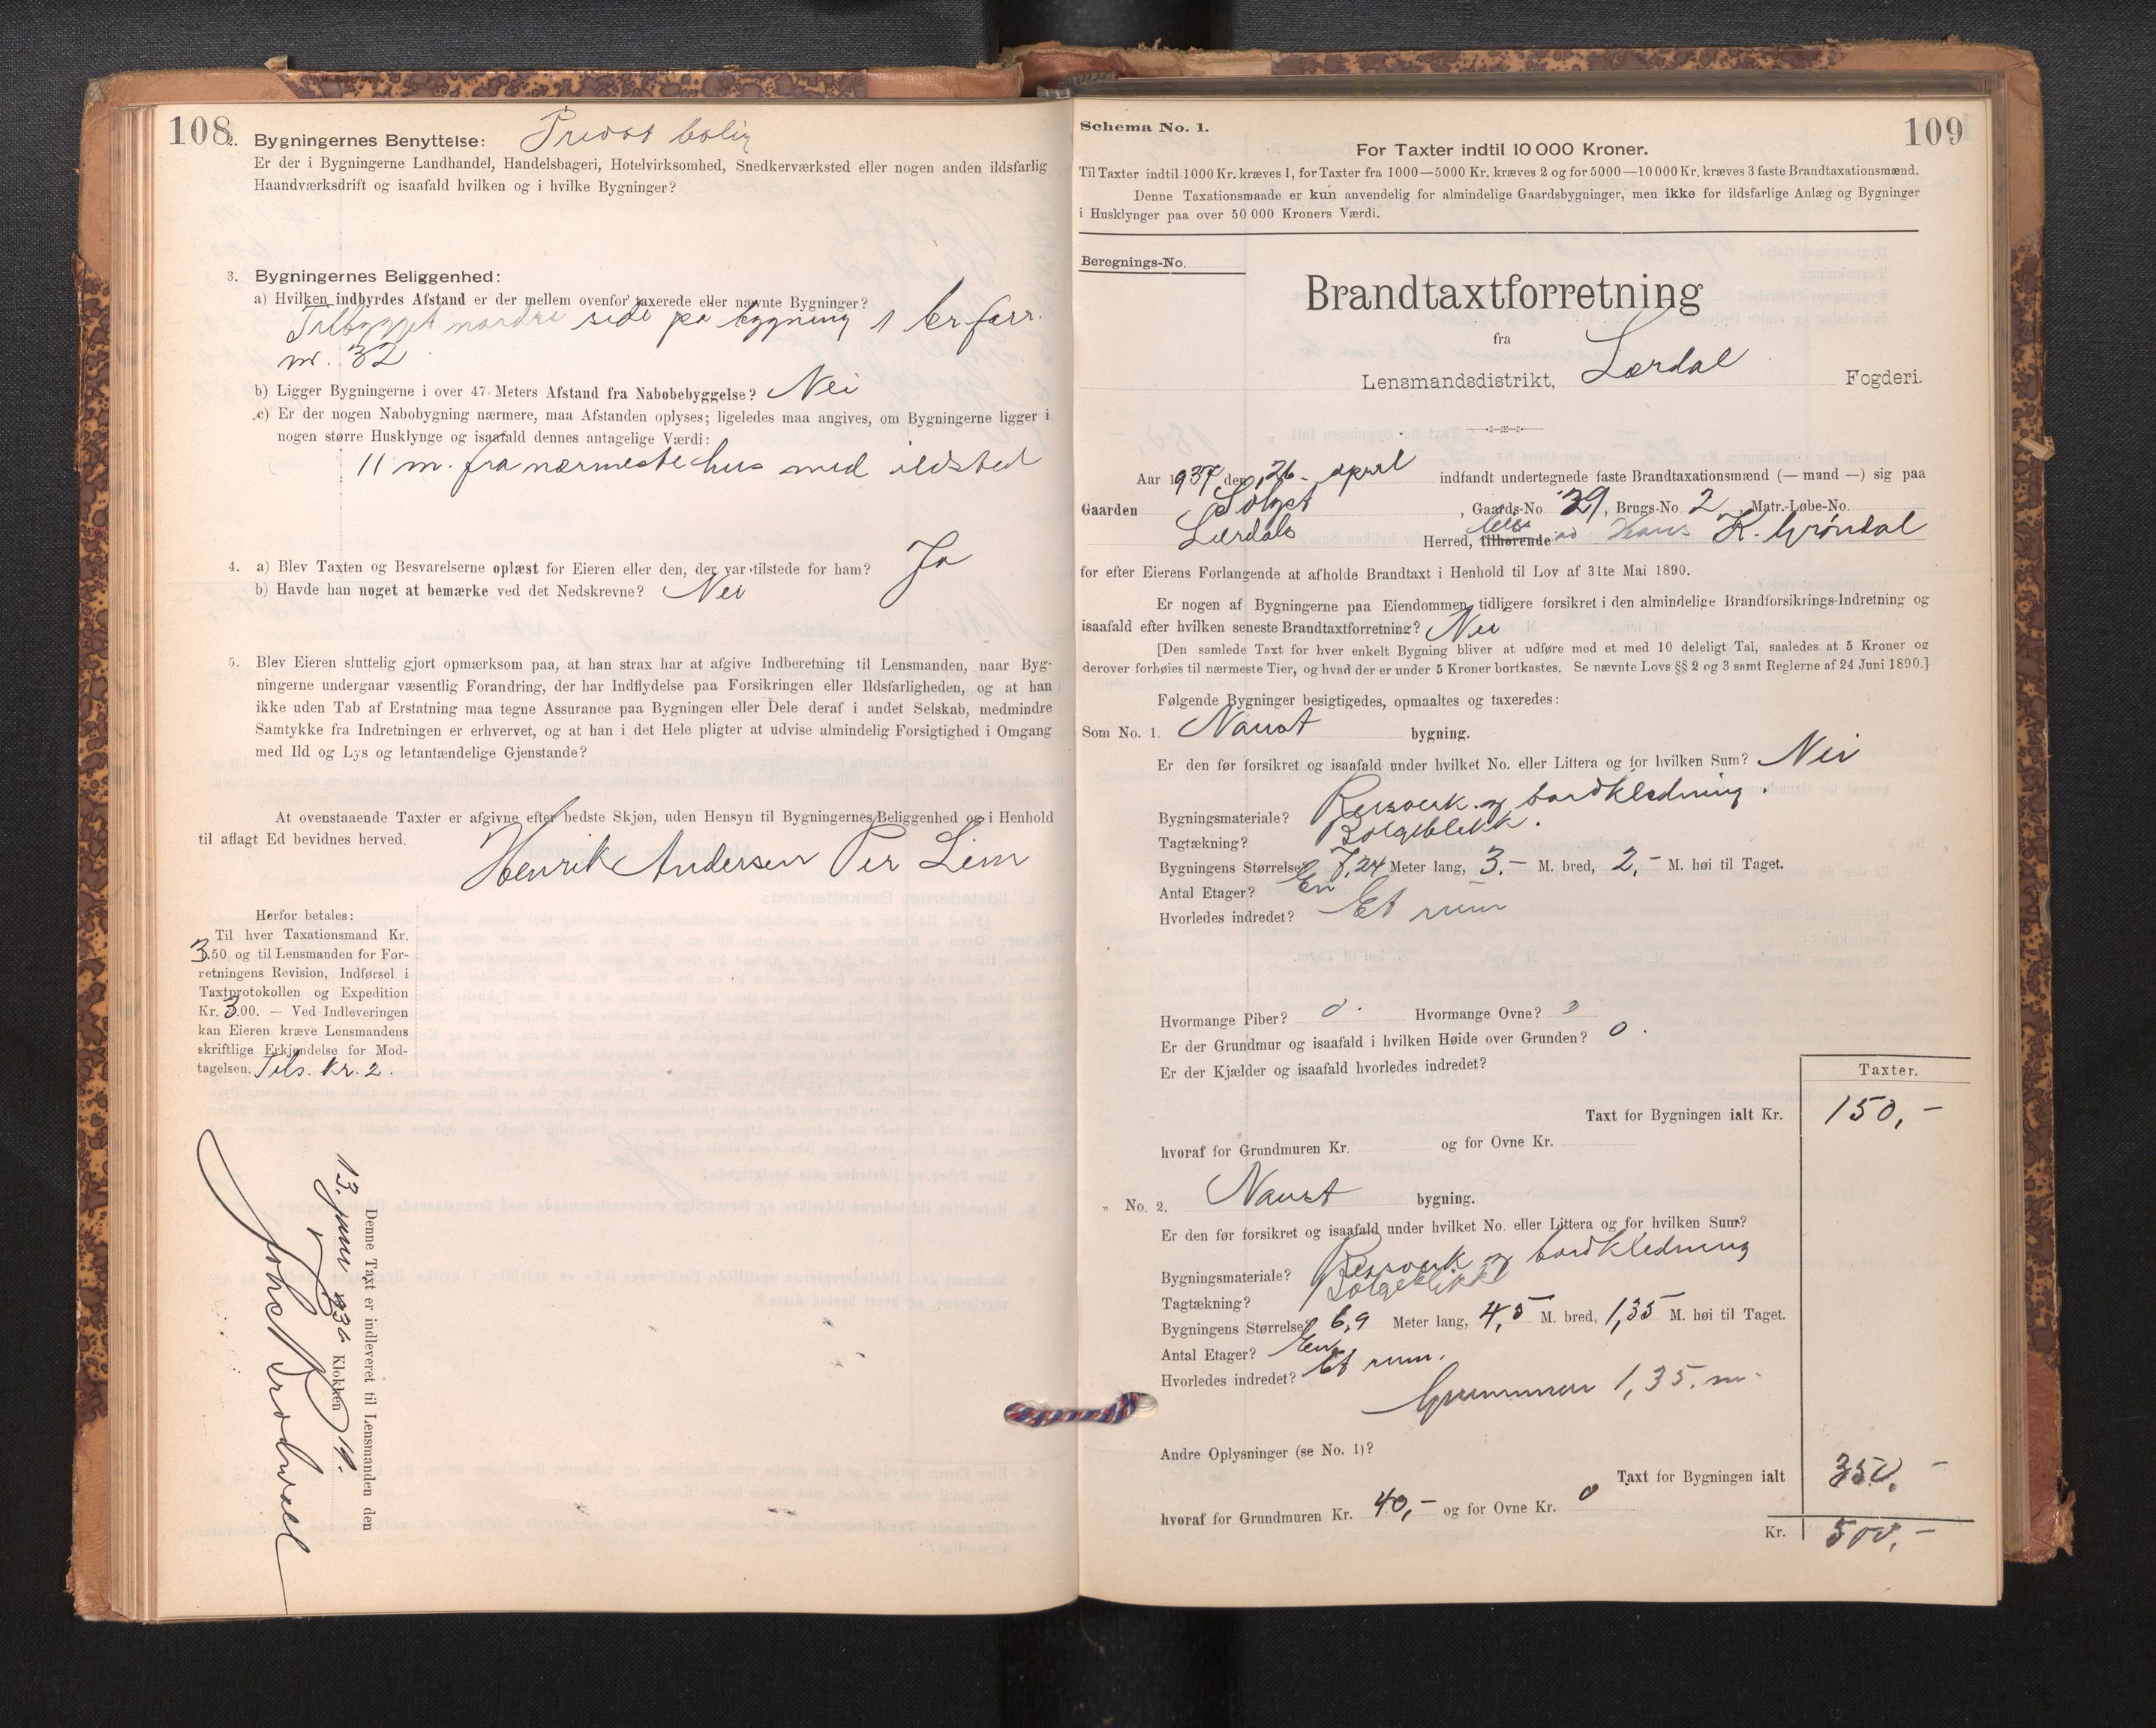 108
2. Bygningernes Benyttelse: Privat bolig
Er der i Bygningerne Landhandel, Handelsbageri, Hotelvirksomhed, Snedkerværksted eller nogen anden ildsfarlig
Haandværksdrift og isaafald hvilken og i hvilke Bygninger?
3. Bygningernes Beliggenhed:
a) Hvilken indbyrdes Afstand er der mellem ovenfor taxerede eller nævnte Bygninger?
Tilbygget nordre side på bygning 1 br.forr.
nr. 32
b) Ligger Bygningerne i over 47 Meters Afstand fra Nabobebyggelse? Nei
c) Er der nogen Nabobygning nærmere, maa Afstanden oplyses; ligeledes maa angives, om Bygningerne ligger i
nogen større Husklynge og isaafald dennes antagelige Værdi:
11 m. fra nærmeste hus med ildsted
4. a) Blev Taxten og Besvarelserne oplæst for Eieren eller den, der var tilstede for ham? Ja
b) Havde han noget at bemærke ved det Nedskrevne? Nei
5. Blev Eieren sluttelig gjort opmærksom paa, at han strax har at afgive Indberetning til Lensmanden, naar Byg-
ningerne undergaar væsentlig Forandring, der har Indflydelse paa Forsikringen eller Ildsfarligheden, og at han
ikke uden Tab af Erstatning maa tegne Assurance paa Bygningen eller Dele deraf i andet Selskab, medmindre
Samtykke fra Indretningen er erhvervet, og at han i det Hele pligter at udvise almindelig Forsigtighed i Omgang
med Ild og Lys og letantændelige Gjenstande?
At ovenstaaende Taxter er afgivne efter bedste Skjøn, uden Hensyn til Bygningernes Beliggenhed og i Henhold
til aflagt Ed bevidnes herved.
Henrik Andersen Per Lem
Herfor betales:
Til hver Taxationsmand Kr.
3.50 og til Lensmanden for For-
retningens Revision, Indførsel i
Taxtprotokollen og Expedition
Kr. 3.00. — Ved Indleveringen
kan Eieren kræve Lensmandens
skriftlige Erkjendelse for Mod-
tagelsen. Tils. kr. 2.
Denne Taxt er indleveret til Lensmanden den
13. juni 1936 Klokken 14.
109
Schema No. 1.
For Taxter indtil 10 000 Kroner.
Til Taxter indtil 1000 Kr. kræves 1, for Taxter fra 1000—5000 Kr. kræves 2 og for 5000—10 000 Kr. kræves 3 faste Brandtaxationsmænd.
Denne Taxationsmaade er kun anvendelig for almindelige Gaardsbygninger, men ikke for ildsfarlige Anlæg og Bygninger
i Husklynger paa over 50 000 Kroners Værdi.
Beregnings-No.
Brandtaxtforretning
fra
Lensmandsdistrikt, Lærdal Fogderi.
Aar 1937 den 26. april indfandt undertegnede faste Brandtaxationsmænd (— mand —) sig paa
Gaarden , Gaards-No. 29, Brugs-No. 2, Matr.-Løbe-No.
Lærdals Herred, tilhørende Hans K. Grøndal
for efter Eierens Forlangende at afholde Brandtaxt i Henhold til Lov af 31te Mai 1890.
Er nogen af Bygningerne paa Eiendommen tidligere forsikret i den almindelige Brandforsikrings-Indretning og
isaafald efter hvilken seneste Brandtaxtforretning? Nei
[Den samlede Taxt for hver enkelt Bygning bliver at udføre med et med 10 deleligt Tal, saaledes at 5 Kroner og
derover forhøies til nærmeste Tier, og hvad der er under 5 Kroner bortkastes. Se nævnte Lovs §§ 2 og 3 samt Reglerne af 24 Juni 1890.]
Følgende Bygninger besigtigedes, opmaaltes og taxeredes:
Som No. 1. Naust bygning.
Er den før forsikret og isaafald under hvilket No. eller Littera og for hvilken Sum? Nei
Bygningsmateriale? Reisverk og bordkledning.
Tagtækning? Bølgeblikk.
Bygningens Størrelse? 7,24 Meter lang, 3.— M. bred, 2,— M. høi til Taget.
Antal Etager? En
Hvorledes indredet? Et rum
Hvormange Piber? 0. Hvormange Ovne? 0
Er der Grundmur og isaafald i hvilken Høide over Grunden? 0.
Er der Kjælder og isaafald hvorledes indredet?
Taxter.
Taxt for Bygningen ialt Kr. 150,—
hvoraf for Grundmuren Kr. og for Ovne Kr.
„ No. 2. Naust bygning.
Er den før forsikret og isaafald under hvilket No. eller Littera og for hvilken Sum?
Bygningsmateriale? Reisverk og bordkledning
Tagtækning? Bølgeblikk
Bygningens Størrelse? 6,9 Meter lang, 4,5 M. bred, 1,35 M. høi til Taget.
Antal Etager? En
Hvorledes indredet? Et rum.
Grunnmur 1,35. m.
Andre Oplysninger (se No. 1)?
Taxt for Bygningen ialt 350,—
hvoraf for Grundmuren Kr. 40,— og for Ovne Kr. 0
Kr. 500,—